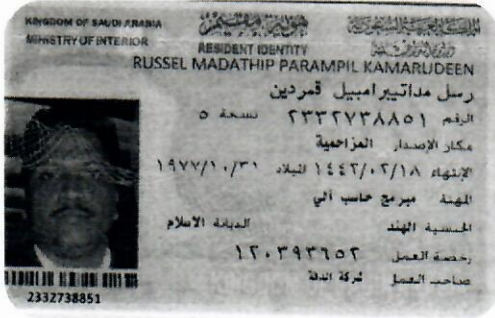 KINGDOM OF SAUDI ARABIA
هوية مقيم
المملكة العربية السعودية
MINISTRY OF INTERIOR
RESIDENT IDENTITY
وزارة الداخلية
RUSSEL MADATHIP PARAMPIL KAMARUDEEN
رسل مداتيبرامبيل قمردين
الرقم ٢٣٣٢٧٣٨٨٥١ نسخة ٥
مكان الإصدار المزاحمية
الإنتهاء ١٤٤٢/٠٢/١٨ الميلاد ١٩٧٧/١٠/٣١
المهنة مبرمج حاسب آلي
الجنسية الهند الديانة الاسلام
رخصة العمل ١٢٠٣٩٣٦٥٢
صاحب العمل شركة الدقة
2332738851